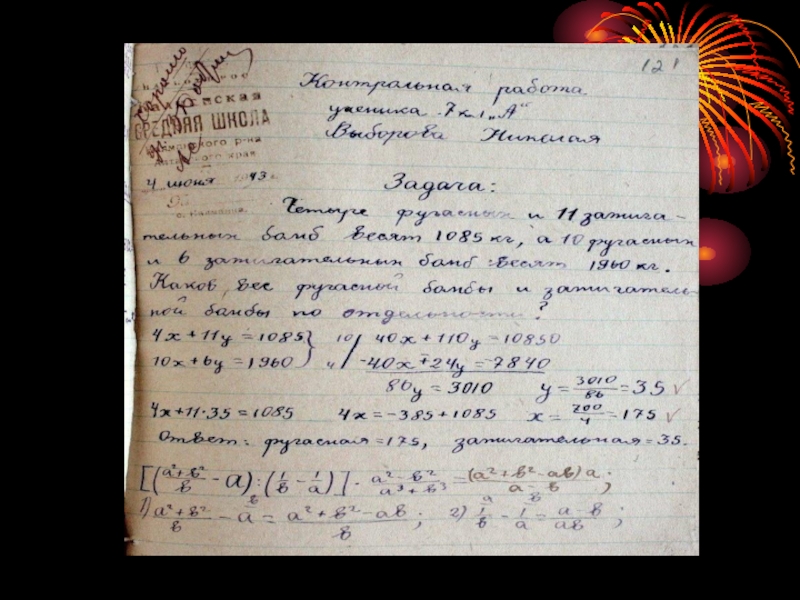 121
хорошо
СРЕДНЯЯ ШКОЛА
края
4 июня 1943 г.
Контрольная работа
ученика 7 кл. „А“
Выборова Николая
Задача:
Четыре фугасных и 11 зажига-
тельных бомб весят 1085 кг, а 10 фугасных
и 6 зажигательных бомб весят 1960 кг.
Каков вес фугасной бомбы и зажигатель-
ной бомбы по отдельности?
4x + 11y = 1085 } 10 / 40x + 110y = 10850
10x + 6y = 1960 } 4 / -40x + 24y = -7840
86y = 3010 y = 3010/86 = 35 ✓
4x + 11·35 = 1085 4x = -385 + 1085 x = 700/4 = 175 ✓
Ответ: фугасная = 175, зажигательная = 35.
[((a²+b²)/b - a) : (1/b - 1/a)] · (a²-b²)/(a³+b³) = (a²+b²-ab)a/(a-b);
1) (a²+b²)/b - a = (a²+b²-ab)/b; 2) 1/b - 1/a = (a-b)/ab;